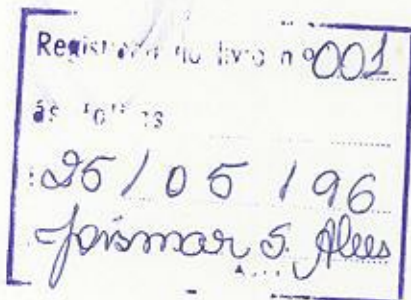 Registrado no livro nº 001
ás folhas
25 / 05 / 96
Joismar S. Alves